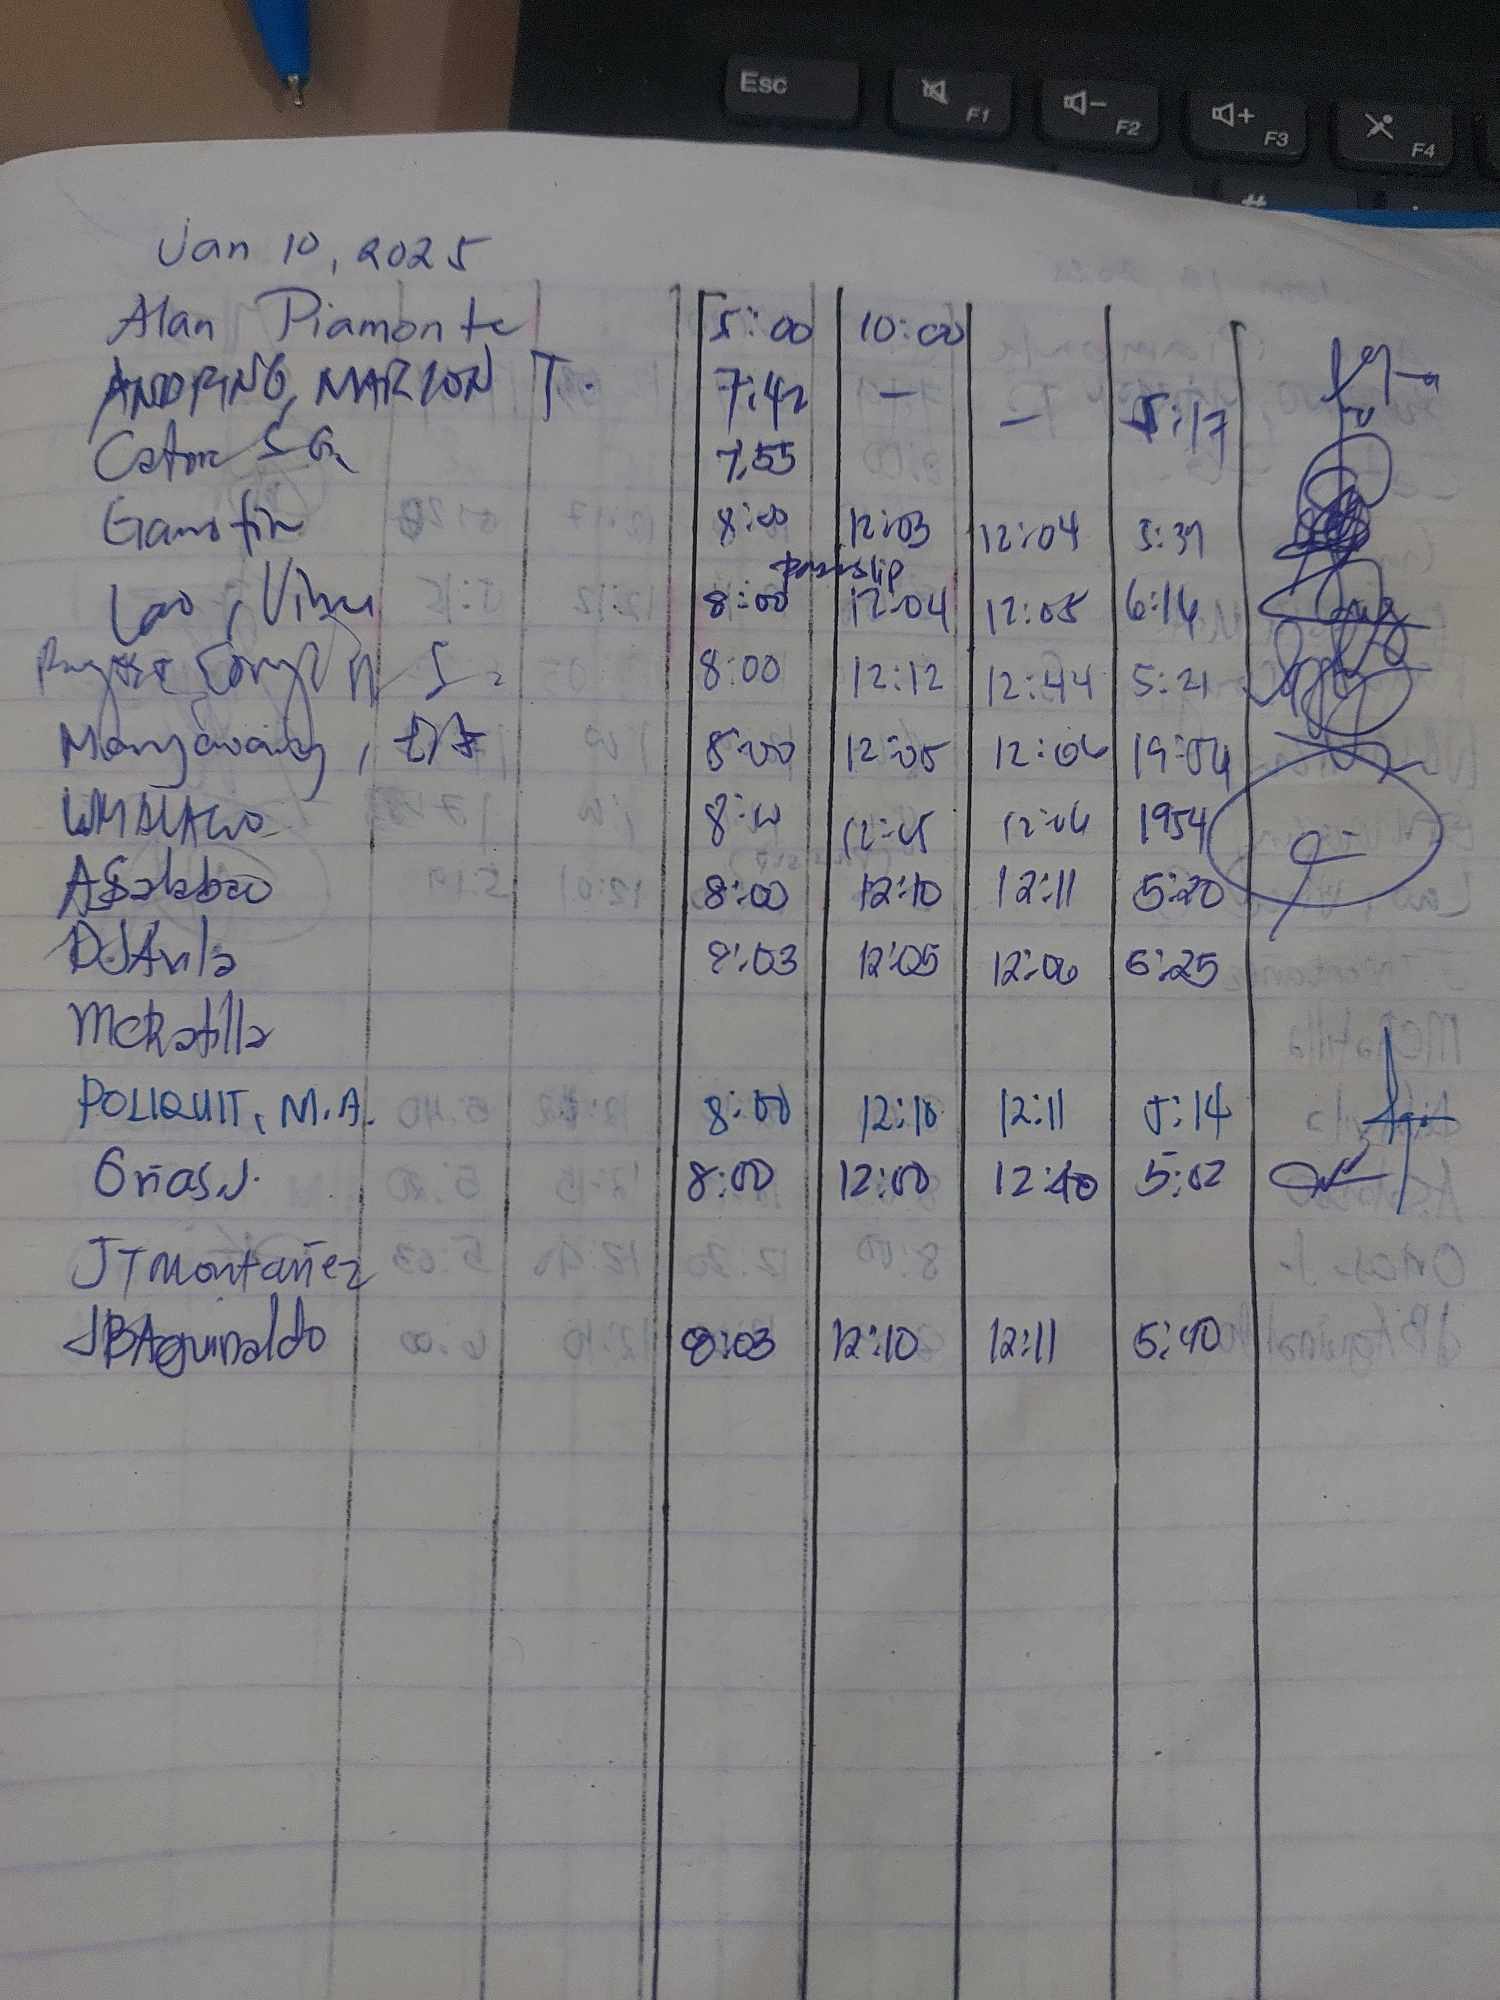 Esc F1 F2 F3 F4
#
Jan 10, 2025
Alan Piamonte 5:00 10:00
ANDORING, MARZON T. 7:42 — — 5:17
7:55
8:00 12:03 12:04 5:31
passslip
Lao, 8:00 12:04 12:05 6:14
8:00 12:12 12:44 5:21
8:00 12:05 12:06 19:54
12:05 12:06 1954
ASalabao 8:00 12:10 12:11 5:20
DJAvila 8:03 12:05 12:06 6:25
MCRatilla
POLIQUIT, M.A. 8:00 12:10 12:11 5:14
Orias J. 8:00 12:00 12:40 5:02
JTMontañez
JBAguinaldo 8:03 12:10 12:11 5:40